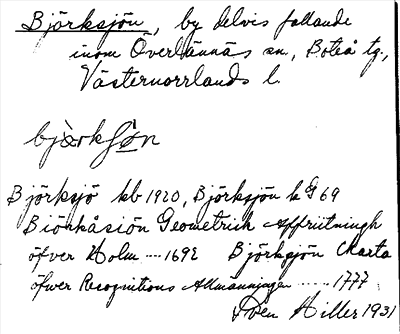 Björksjön, by delvis fallande
inom Överlännäs sn., Boteå tg.,
Västernorrlands l.
bjò̀rkʃön
Björksjö kb 1920, Björksjön k G 69
Biörkåsiön Geometrisk Affriitningh
öfver Holm --- 1692 Björksjön Charta
öfwer Recognitions Allmänningen ------ 1777
Sven Hiller 1931